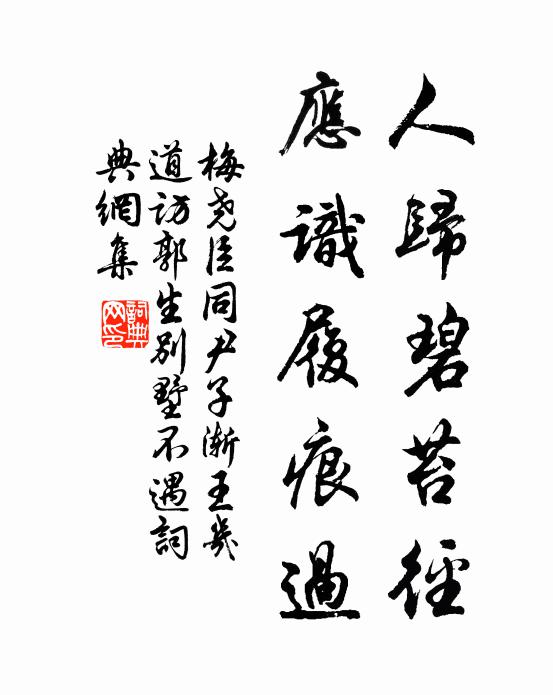 人歸碧苔徑
應識履痕過
梅堯臣同尹子漸王幾
道訪郭生別墅不遇詞
典網集
詞典網印